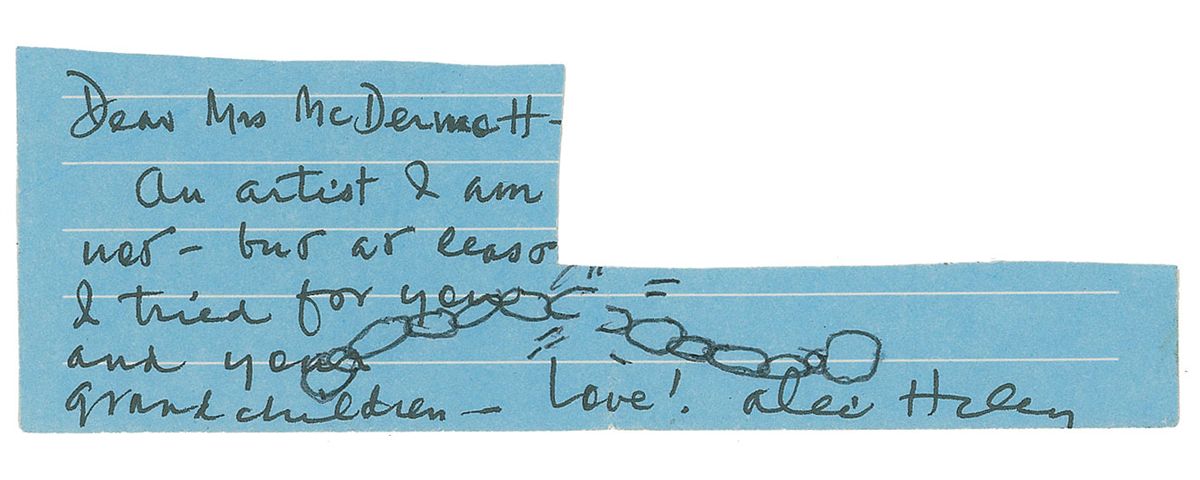 Dear Mrs McDermott-
An artist I am
not - but at least
I tried for you
and your
grandchildren - Love! Alex Haley